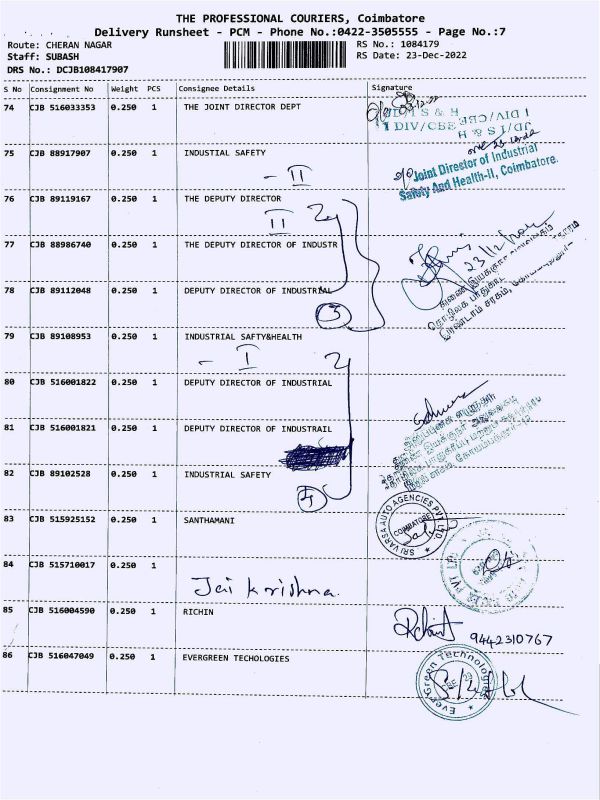 THE PROFESSIONAL COURIERS, Coimbatore
Delivery Runsheet - PCM - Phone No.:0422-3505555 - Page No.:7
Route: CHERAN NAGAR
RS No.: 1084179
Staff: SUBASH
RS Date: 23-Dec-2022
DRS No.: DCJB108417907
S No Consignment No Weight PCS Consignee Details Signature
74 CJB 516033353 0.250 1 THE JOINT DIRECTOR DEPT
75 CJB 88917907 0.250 1 INDUSTIAL SAFETY
- II
Joint Director of Industrial
Safety And Health-II, Coimbatore.
76 CJB 89119167 0.250 1 THE DEPUTY DIRECTOR
II
77 CJB 88986740 0.250 1 THE DEPUTY DIRECTOR OF INDUSTR
23/12/2022
78 CJB 89112048 0.250 1 DEPUTY DIRECTOR OF INDUSTRIAL
3
79 CJB 89108953 0.250 1 INDUSTRIAL SAFTY&HEALTH
- I
80 CJB 516001822 0.250 1 DEPUTY DIRECTOR OF INDUSTRIAL
81 CJB 516001821 0.250 1 DEPUTY DIRECTOR OF INDUSTRAIL
82 CJB 89102528 0.250 1 INDUSTRIAL SAFETY
4
83 CJB 515925152 0.250 1 SANTHAMANI
SRI VARSA AUTO AGENCIES PVT LTD
COIMBATORE
84 CJB 515710017 0.250 1
Jai Krishna.
85 CJB 516004590 0.250 1 RICHIN
9442310767
86 CJB 516047049 0.250 1 EVERGREEN TECHOLOGIES
EverGreen Technologies